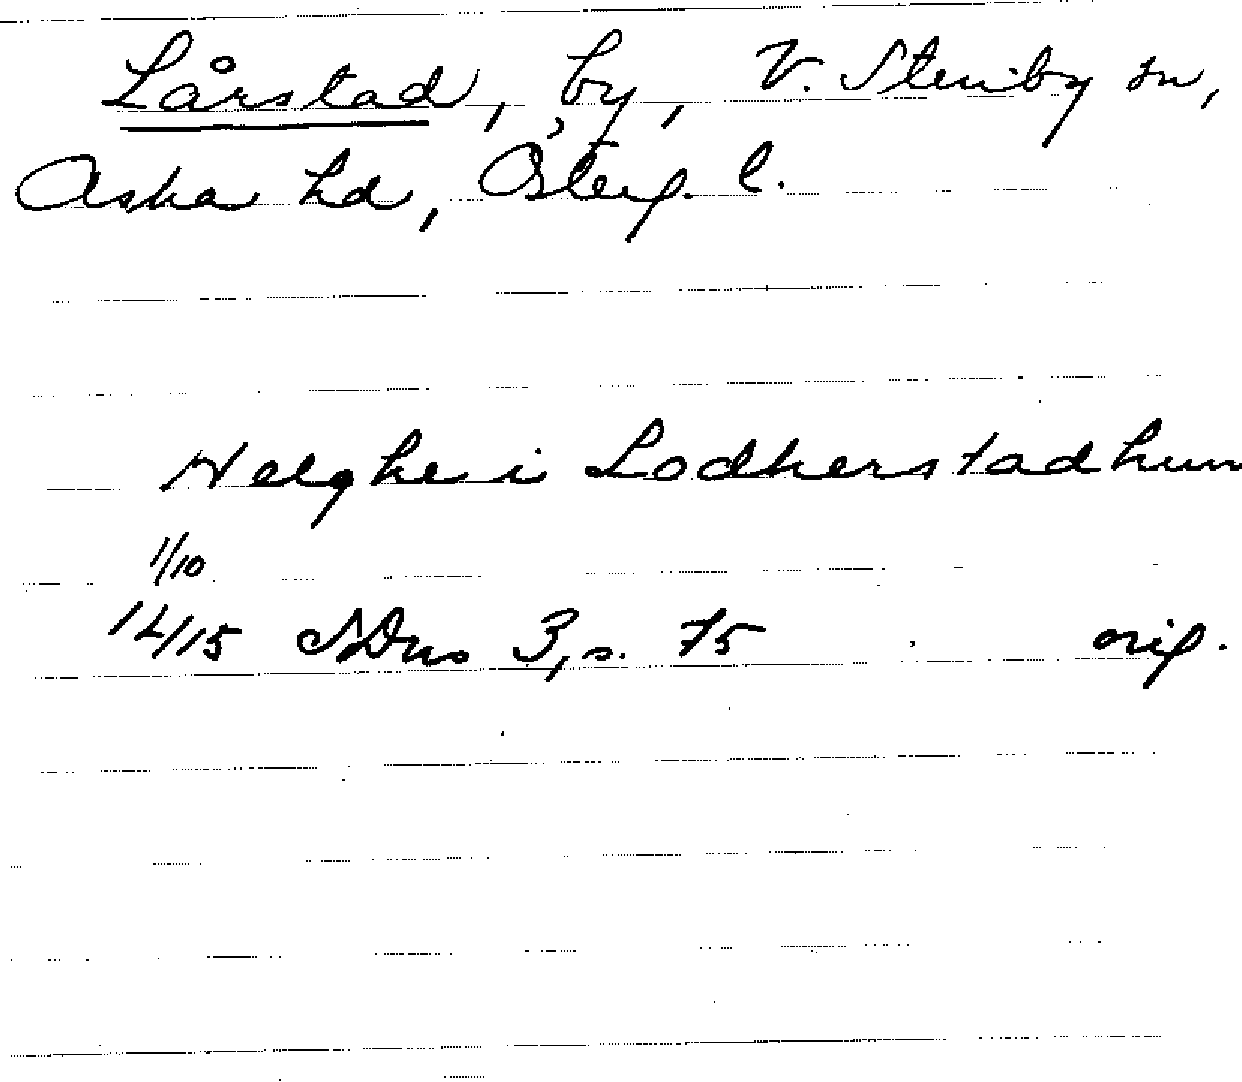 Lårstad, by, V. Stenby sn,
Aska hd, Österg. l.
Helghe i Lodherstadhum
1/10
14/15 SDns 3, s. 75 orig.